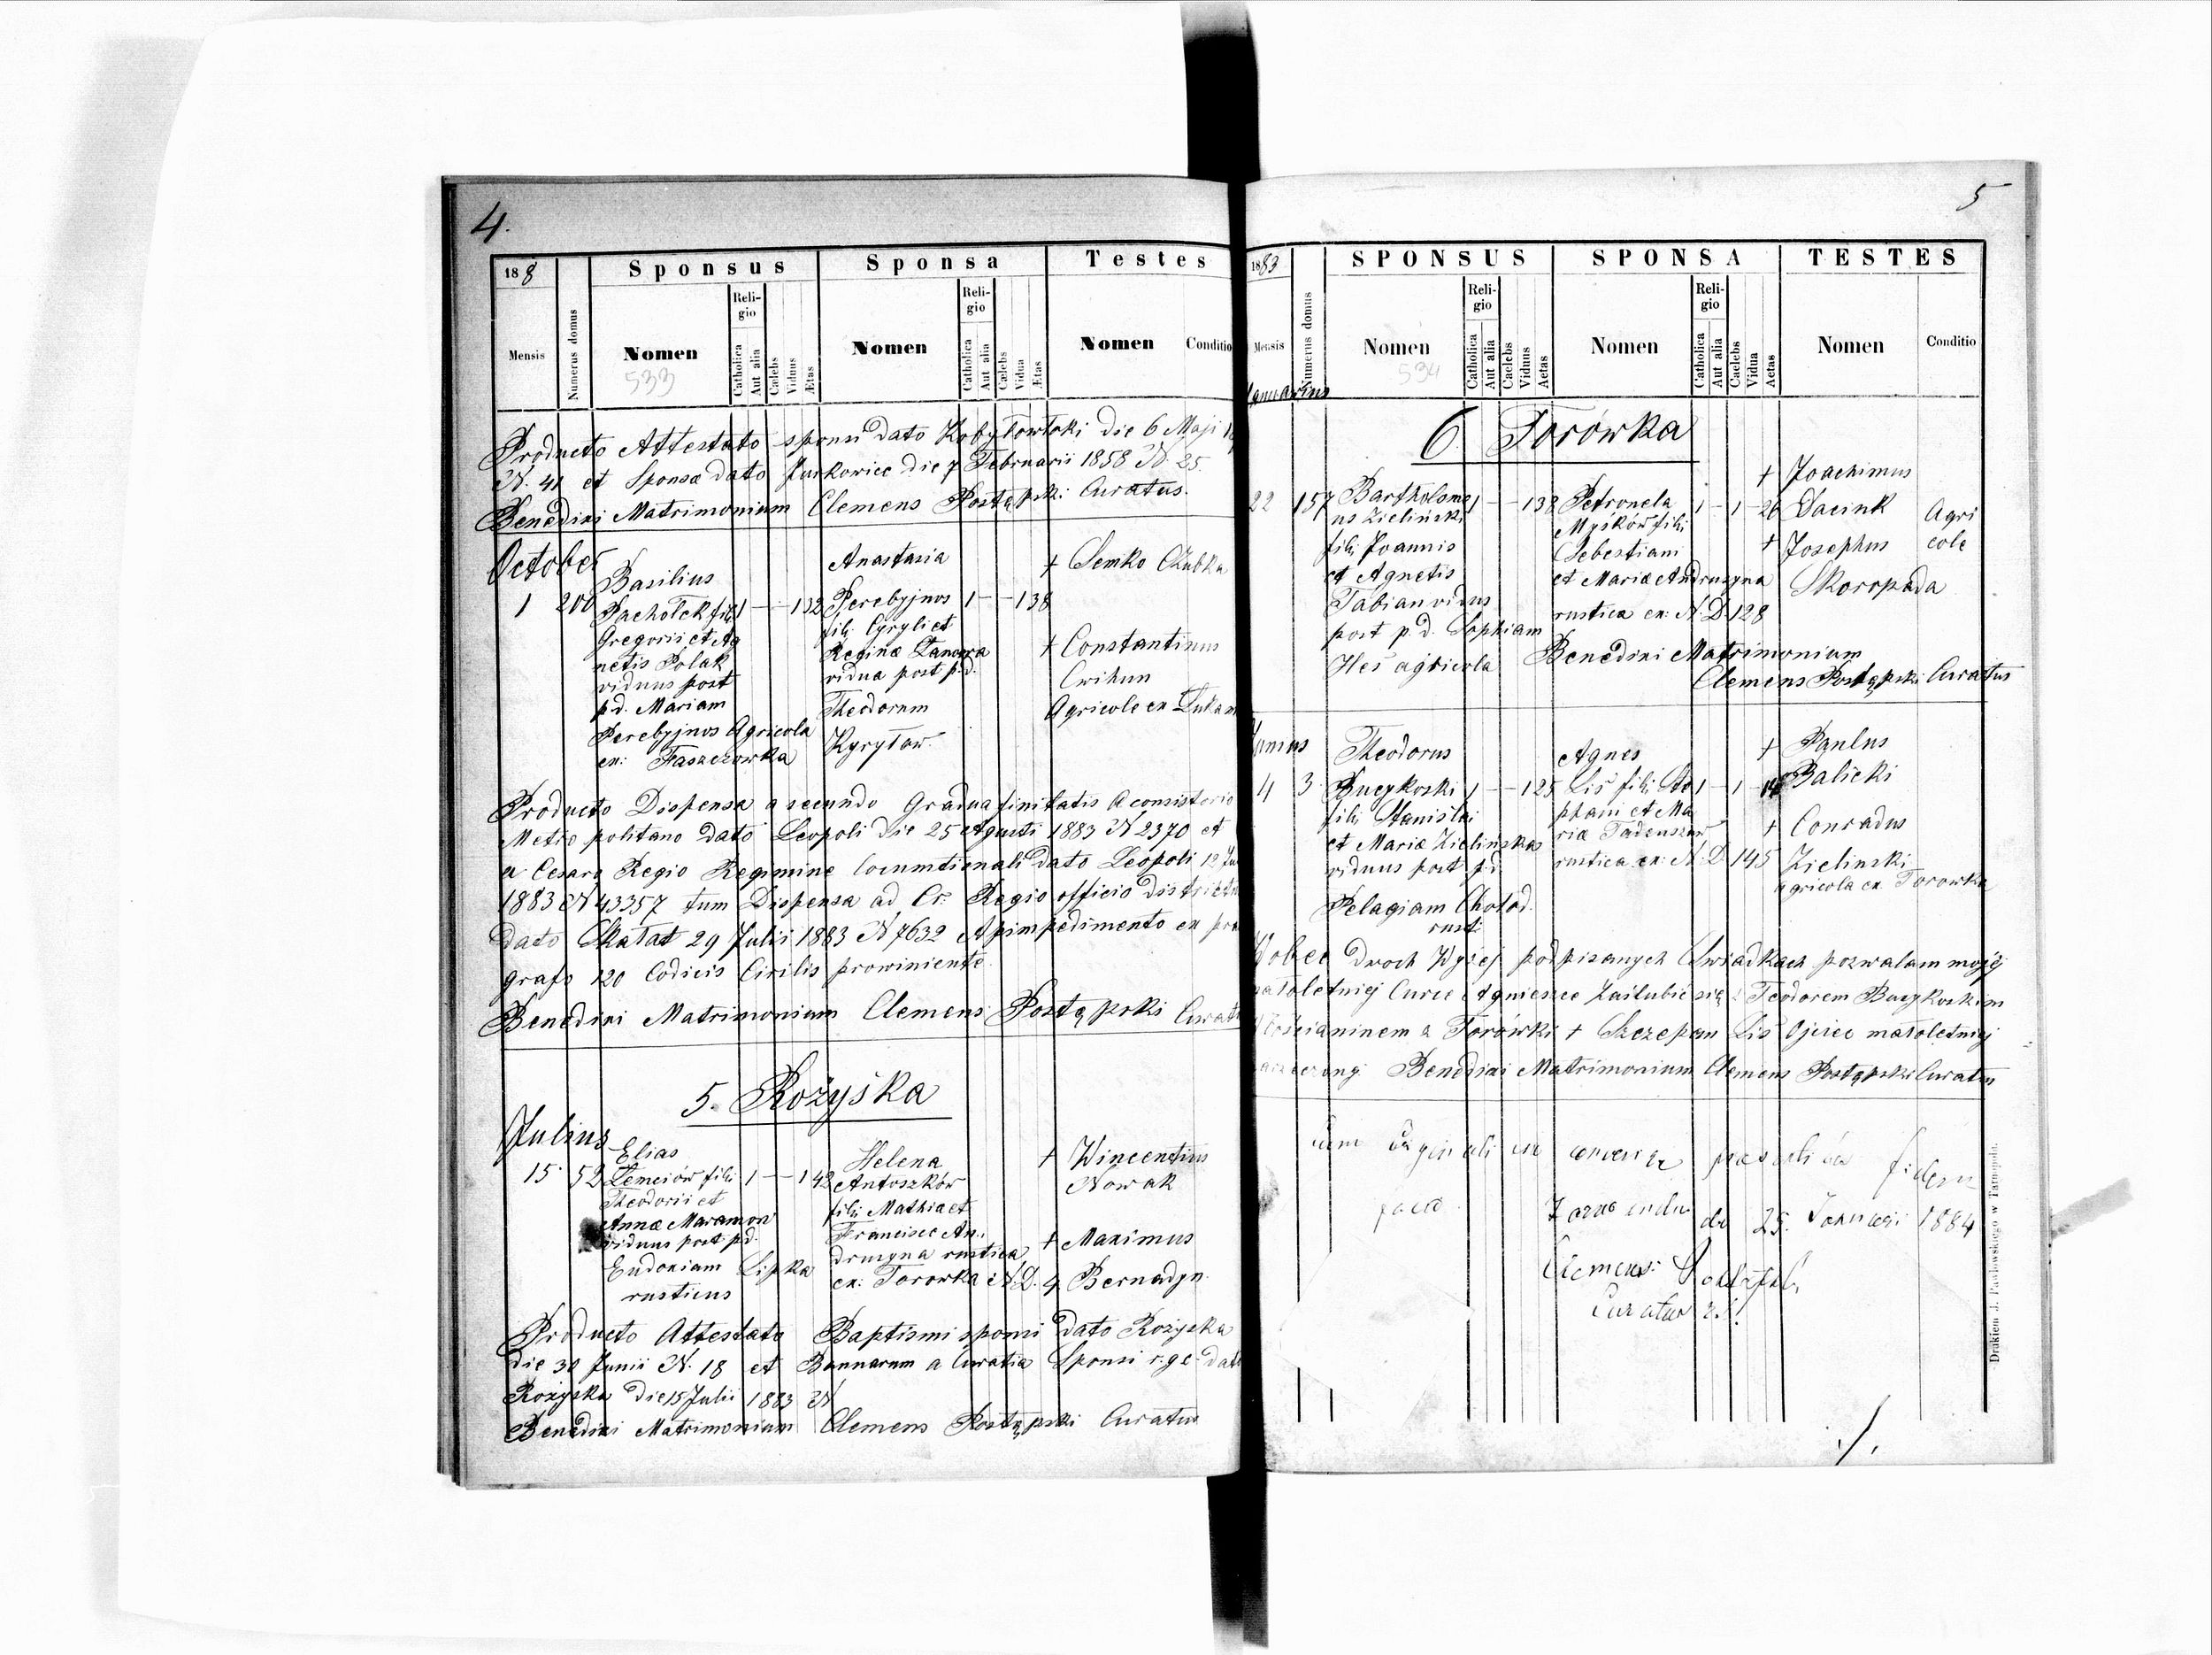 4.
188
Sponsus
Sponsa
Testes
Mensis
Numerus domus
Nomen
533
Religio
Catholica
Aut alia
Cælebs
Viduus
Ætas
Nomen
Religio
Catholica
Aut alia
Cælebs
Vidua
Ætas
Nomen
Conditio
Producto Attestato sponsi dato Kobyłowłoki die 6 Maji
N. 41 et Sponsæ dato Jurkowice die 7 Februarii 1858 N 25.
Benedixi Matrimonium Clemens Postępski Curatus.
October
1 200 Basilius
Pacholek fili 1 — — 1 32
Gregorii et Ag
netis Polak
viduus post
p.d. Mariam
Perebyjnos Agricola
ex: Faszczowka
Anastasia
Perebyjnos 1 — — 1 38
fili Cyryli et
Reginæ Zanowa
vidua post p.d.
Theodorum
Kyryłow.
+ Semko Czubka
+ Constantinus
Cwihun
Agricole ex Luka
Producto Dispensa a secundo Gradu afinitatis A consistorio
Metro politano dato Leopoli Die 25 Agusti 1883 N 2370 et
a Cesaro Regio Regimine locumtionali dato Leopoli 12
1883 N 43357 tum Dispensa ad Cr. Regio officio districtu
dato Skałat 29 Julii 1883 N 7632 A pimpedimento ex
grafo 120 Codicis Cirilis prowiniente
Benedixi Matrimonium Clemens Postępski
5. Rożyska
Julius
15 52 Elias
Zemciów fili 1 — — 1 42
Theodorii et
Annæ Maramon
viduus post p.d.
Eudoxiam Lipka
rusticus
Helena
Antoszków
fili Mathia et
Francisce An
druzyna rustica
ex: Torowka N.D. 9
+ Wincentius
Nowak
+ Maximus
Bernadyn
Producto Attestato Baptismi sponsi dato Rożyska
die 30 Junii N. 18 et Bannarum a Curatia Sponsi r.g.c.
Rożyska Die 15 Julii 1883 N
Benedixi Matrimonium Clemens Postępski Curatus
5
1883
SPONSUS
SPONSA
TESTES
Mensis
Numerus domus
Nomen
534
Religio
Catholica
Aut alia
Caelebs
Viduus
Aetas
Nomen
Religio
Catholica
Aut alia
Caelebs
Vidua
Aetas
Nomen
Conditio
Januarius
6. Torówka
22 157 Bartholome 1 — — 1 38
us Zieliński
fili Joannis
et Agnetis
Fabian vidus
post p.d. Sophiam
Heś agricola
Petronela 1 — 1 — 26
Myśków fili
Sebestiani
et Mariæ Andruzyna
rustica ex: N.D 128
+ Joachimus
Sacink Agri
+ Josephus cole
Skoropada
Benedixi Matrimonium
Clemens Postępski Curatus
Junius
4 3 Theodorus
Buczkoski 1 — — 1 25
fili Stanislai
et Mariæ Zielinska
viduus post p.d.
Pelagiam Chołod.
rust.
Agnes
Lis fili Ste 1 — 1 —
phani et Ma
riæ Tadeuszów
rustica ex: N.D 145
+ Paulus
Balicki
+ Conradus
Zielinski
agricola ex Torowka
Wobec dwoch Wyżej podpisanych Swiadkach pozwalam mojej
małoletniej Curce Agniesce Zaślubić się z Teodorem Buczkoskim
Włoscianinem z Torówki + Szczepan Lis Ojciec małoletniej
Benedixi Matrimonium Clemens Postępski Curatus
fidem
25. Januarii 1884
Clemens Postępski
Curatus r.l.
Drukiem J. Pawłowskiego w Tarnopolu.